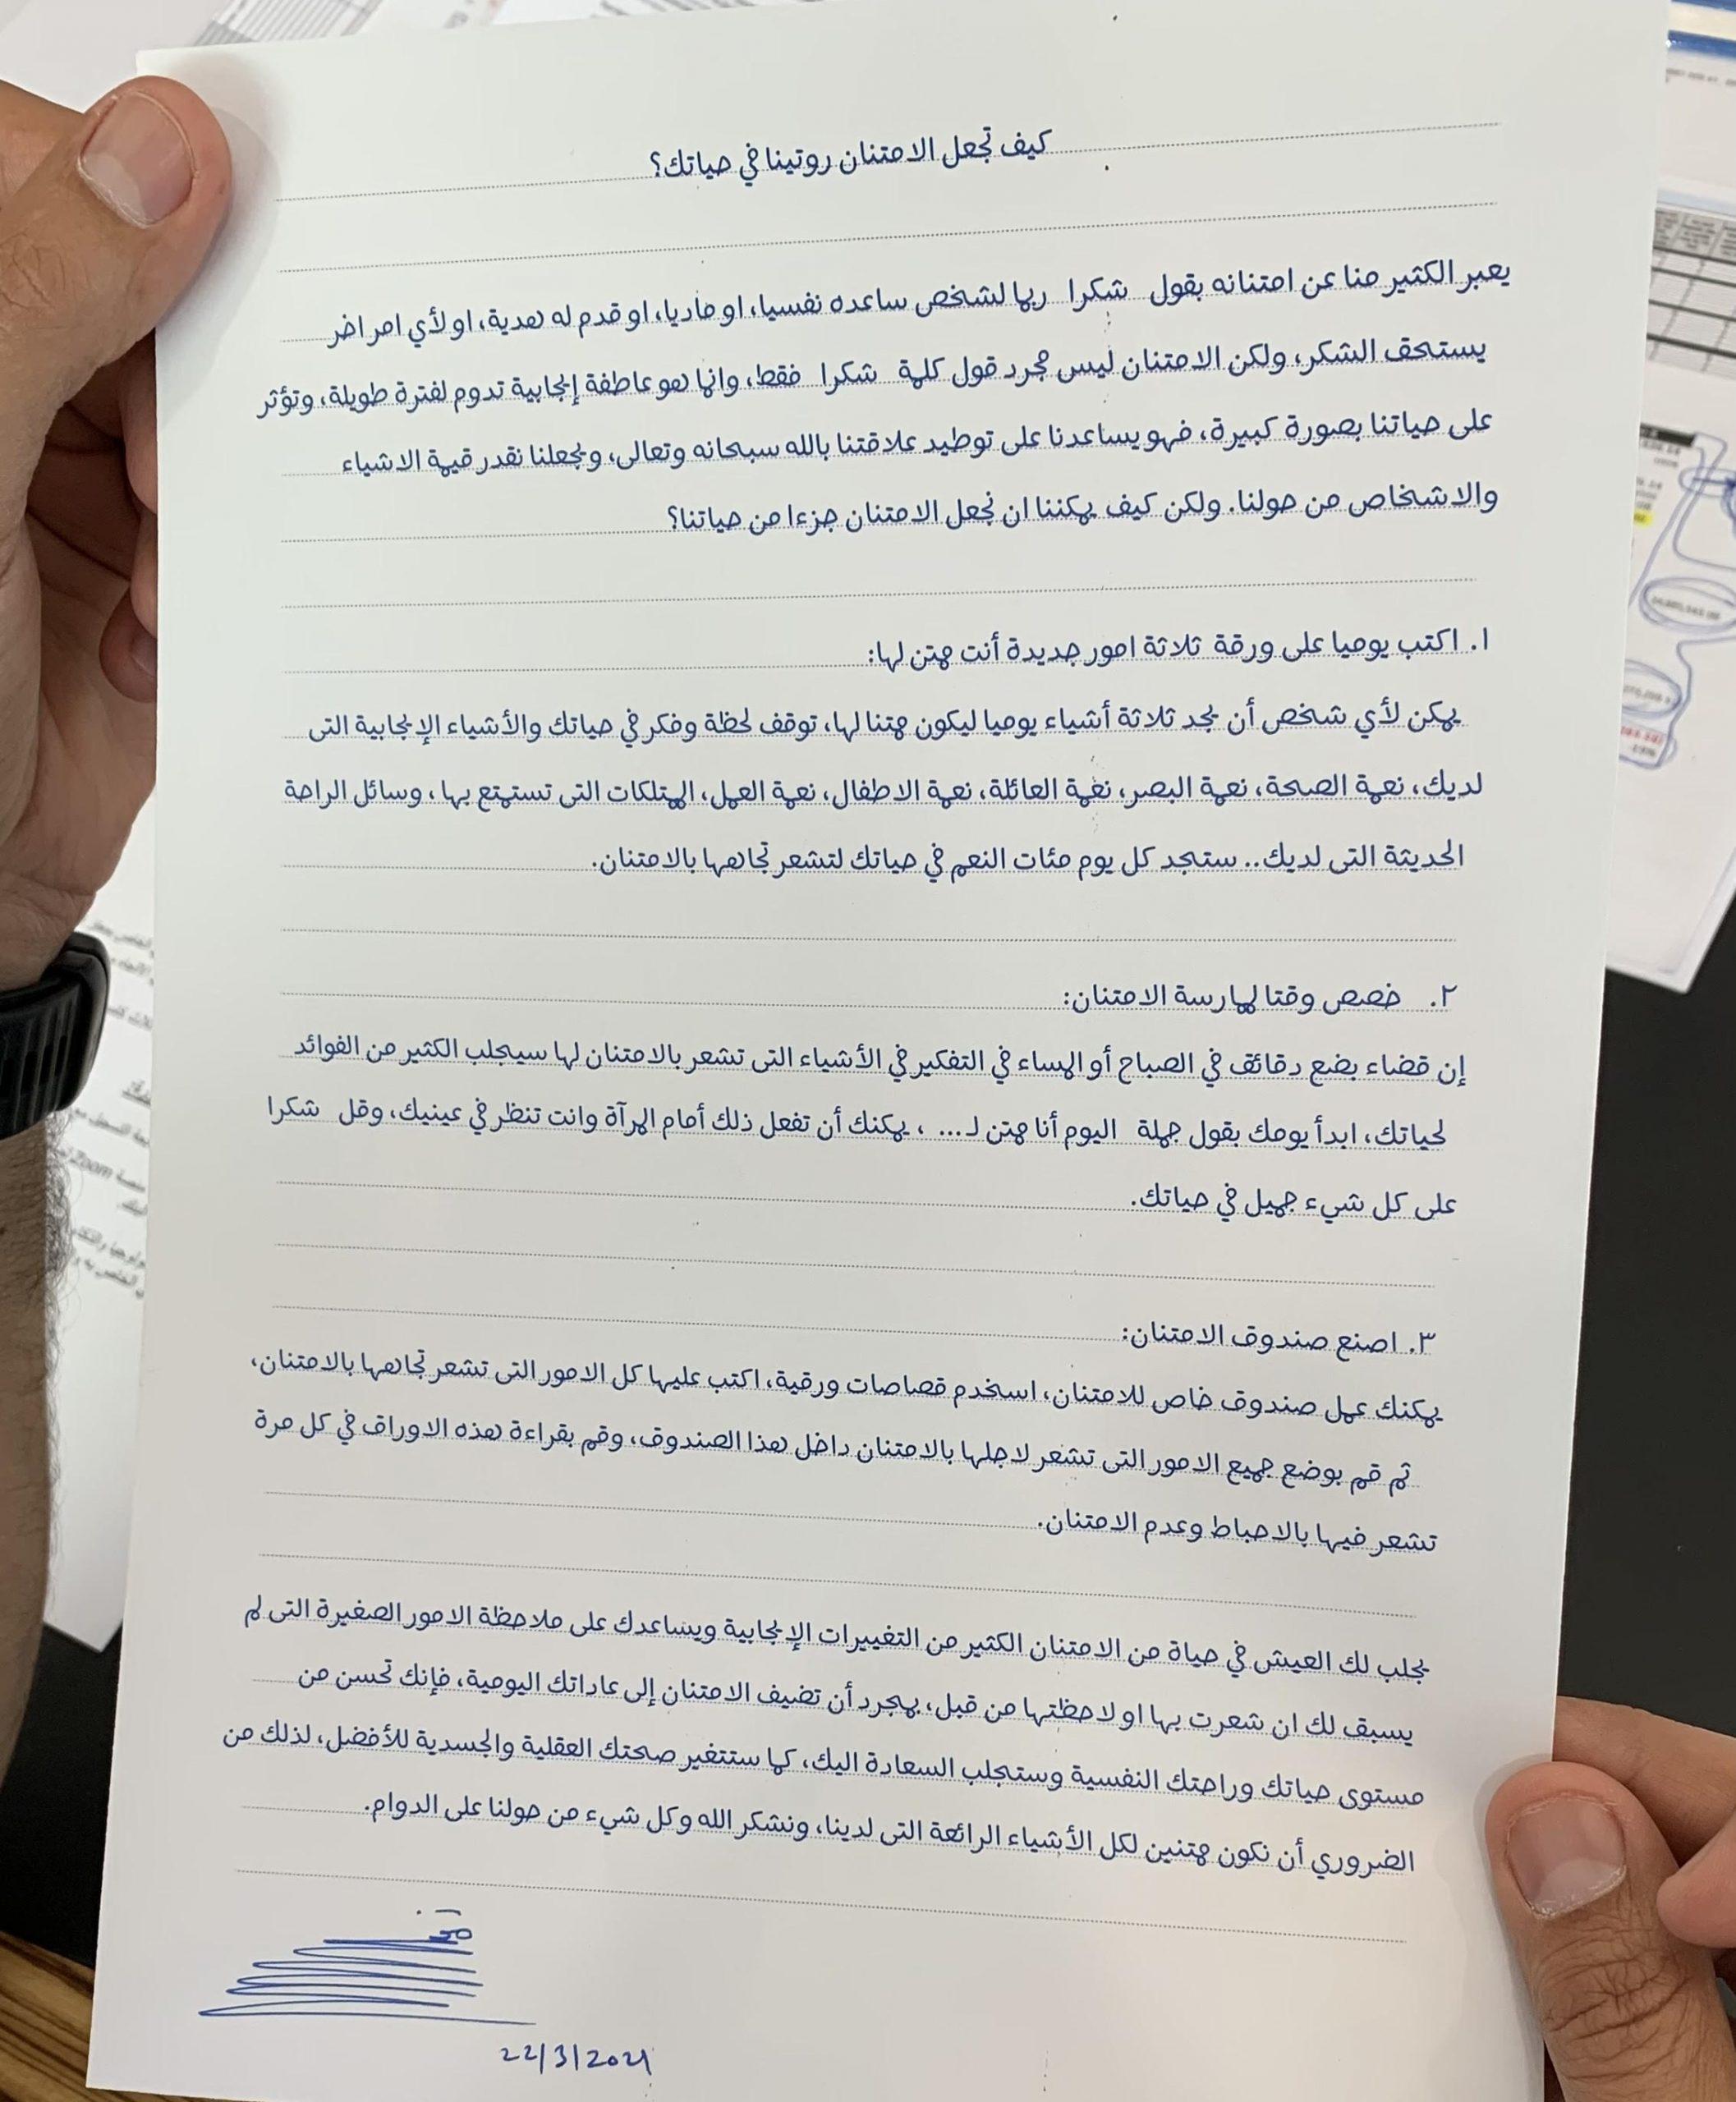 كيف تجعل الامتنان روتينا في حياتك؟
يعبر الكثير منا عن امتنانه بقول شكرا ربما لشخص ساعده نفسيا، او ماديا، او قدم له هدية، او لأي امر اخر
يستحق الشكر، ولكن الامتنان ليس مجرد قول كلمة شكرا فقط، وانما هو عاطفة إيجابية تدوم لفترة طويلة، وتؤثر
على حياتنا بصورة كبيرة، فهو يساعدنا على توطيد علاقتنا بالله سبحانه وتعالى، ويجعلنا نقدر قيمة الاشياء
والاشخاص من حولنا. ولكن كيف يمكننا ان نجعل الامتنان جزءا من حياتنا؟
١. اكتب يوميا على ورقة ثلاثة امور جديدة أنت ممتن لها:
يمكن لأي شخص أن يجد ثلاثة أشياء يوميا ليكون ممتنا لها، توقف لحظة وفكر في حياتك والأشياء الإيجابية التى
لديك، نعمة الصحة، نعمة البصر، نغمة العائلة، نعمة الاطفال، نعمة العمل، الممتلكات التى تستمتع بها، وسائل الراحة
الحديثة التى لديك.. ستجد كل يوم مئات النعم في حياتك لتشعر تجاهها بالامتنان.
٢. خصص وقتا لممارسة الامتنان:
إن قضاء بضع دقائق في الصباح أو المساء في التفكير في الأشياء التى تشعر بالامتنان لها سيجلب الكثير من الفوائد
لحياتك، ابدأ يومك بقول جملة اليوم أنا ممتن لـ... ، يمكنك أن تفعل ذلك أمام المرآة وانت تنظر في عينيك، وقل شكرا
على كل شيء جميل في حياتك.
٣. اصنع صندوق الامتنان:
يمكنك عمل صندوق خاص للامتنان، استخدم قصاصات ورقية، اكتب عليها كل الامور التى تشعر تجاهها بالامتنان،
ثم قم بوضع جميع الامور التى تشعر لاجلها بالامتنان داخل هذا الصندوق، وقم بقراءة هذه الاوراق في كل مرة
تشعر فيها بالاحباط وعدم الامتنان.
يجلب لك العيش في حياة من الامتنان الكثير من التغييرات الإيجابية ويساعدك على ملاحظة الامور الصغيرة التى لم
يسبق لك ان شعرت بها او لاحظتها من قبل، بمجرد أن تضيف الامتنان إلى عاداتك اليومية، فإنك تحسن من
مستوى حياتك وراحتك النفسية وستجلب السعادة اليك، كما ستتغير صحتك العقلية والجسدية للأفضل، لذلك من
الضروري أن نكون ممتنين لكل الأشياء الرائعة التى لدينا، ونشكر الله وكل شيء من حولنا على الدوام.
22/3/2021